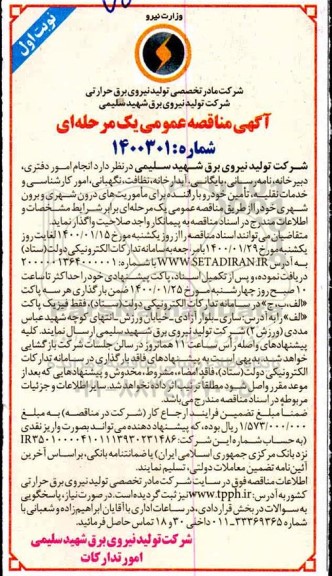 وزارت نیرو
نوبت اول
شرکت مادر تخصصی تولید نیروی برق حرارتی
شرکت تولید نیروی برق شهید سلیمی
آگهی مناقصه عمومی یک مرحله‌ای
شماره: ۱۴۰۰۳۰۱
شرکت تولید نیروی برق شهید سلیمی در نظر دارد انجام امور دفتری،
دبیرخانه، نامه‌رسانی، بایگانی، آبدارخانه، نظافت، نگهبانی، امور کارشناسی و
خدمات نقلیه، تأمین خودرو با راننده برای مأموریت‌های درون شهری و برون
شهری خود را از طریق مناقصه عمومی یک مرحله‌ای برابر شرایط مشخصات و
اطلاعات مندرج در اسناد مناقصه به پیمانکار واجد صلاحیت واگذار نماید.
متقاضیان می‌توانند اسناد مناقصه را از روز یکشنبه مورخ ۱۴۰۰/۰۱/۱۵ لغایت روز
یکشنبه مورخ ۱۴۰۰/۰۱/۲۹ با مراجعه به سامانه تدارکات الکترونیکی دولت (ستاد)
به آدرس WWW.SETADIRAN.IR با شماره:
دریافت نموده و پس از تکمیل اسناد، پاکت پیشنهادی خود را حداکثر تا ساعت
۱۰ صبح روز چهارشنبه مورخ ۱۴۰۰/۰۱/۲۵ ضمن بارگذاری هر سه پاکت
«الف، ب، ج» در سامانه تدارکات الکترونیکی دولت (ستاد)، فقط فیزیک پاکت
«الف» را به آدرس ساری، بلوار آزادی، خیابان ورزش، انتهای کوچه شهید عباس
مددی (ورزش ۲) شرکت تولید نیروی برق شهید سلیمی ارسال نمایند. کلیه
پیشنهادهای واصله رأس ساعت ۱۱ همان روز در سالن جلسات شرکت بازگشایی
خواهد شد. بدیهی است به پیشنهادهای فاقد بارگذاری در سامانه تدارکات
الکترونیکی دولت (ستاد)، فاقد امضاء، مشروط، مخدوش و پیشنهادهایی که بعد از
موعد مقرر واصل شود مطلقاً ترتیب اثر داده نخواهد شد. سایر اطلاعات و جزئیات
مربوطه در اسناد مناقصه مندرج می‌باشد.
ضمناً مبلغ تضمین فرایند ارجاع کار (شرکت در مناقصه) به مبلغ
۱/۵۷۳/۰۰۰/۰۰۰ ریال بوده، که پیشنهاد دهنده می‌تواند بصورت واریز نقدی
(به حساب شماره این شرکت:
نزد بانک مرکزی جمهوری اسلامی ایران) یا ضمانتنامه بانکی، بر اساس آخرین
آئین‌نامه تضمین معاملات دولتی، تسلیم نمایند.
اطلاعات مناقصه فوق در سایت شرکت مادر تخصصی تولید نیروی برق حرارتی
کشور به آدرس: www.tpph.ir نیز ثبت گردیده است. در صورت نیاز، پاسخگویی
به سوالات در بخش قراردادی، در ساعات اداری با آقایان ابراهیم‌زاده و شعبانی با
شماره ۳۳۳۶۹۳۶۵-۰۱۱ داخلی ۳۰ و ۱۸ تماس حاصل فرمائید.
شرکت تولید نیروی برق شهید سلیمی
امور تدارکات